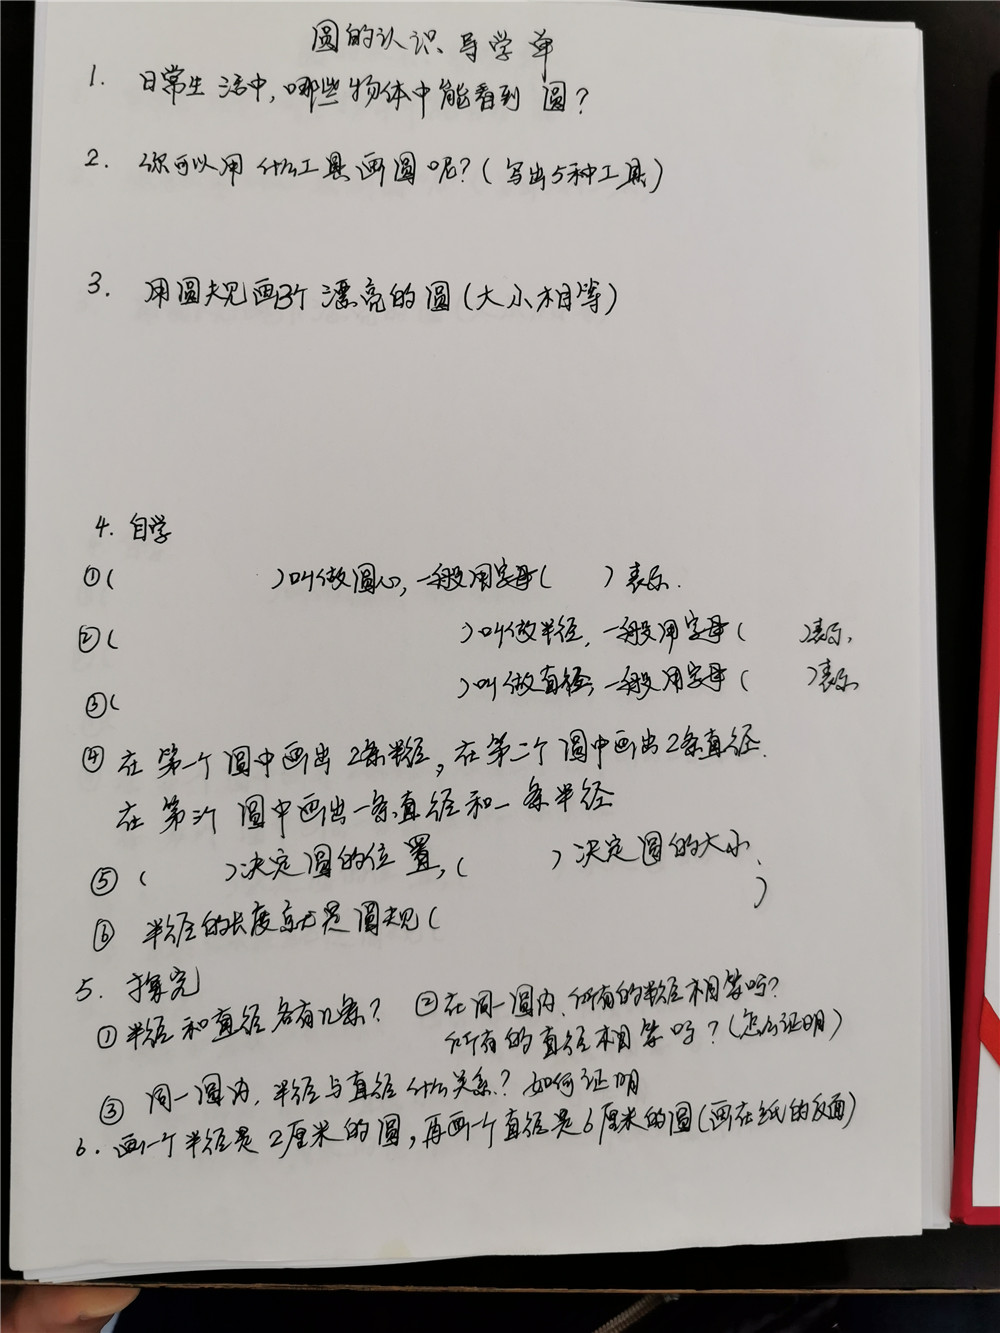 圆的认识导学单
1. 日常生活中,哪些物体中能看到圆?
2. 你可以用什么工具画圆呢?(写出5种工具)
3. 用圆规画3个漂亮的圆(大小相等)
4. 自学
①( )叫做圆心,一般用字母( )表示.
②( )叫做半径,一般用字母( )表示,
③( )叫做直径,一般用字母( )表示
④ 在第一个圆中画出2条半径,在第二个圆中画出2条直径.
在第三个圆中画出一条直径和一条半径
⑤ ( )决定圆的位置,( )决定圆的大小.
⑥ 半径的长度就是圆规( )
5. 探究
①半径和直径各有几条? ②在同一圆内,所有的半径相等吗?
所有的直径相等吗?(怎么证明)
③ 同一圆内,半径与直径什么关系?如何证明
6. 画一个半径是2厘米的圆,再画一个直径是6厘米的圆(画在纸的反面)